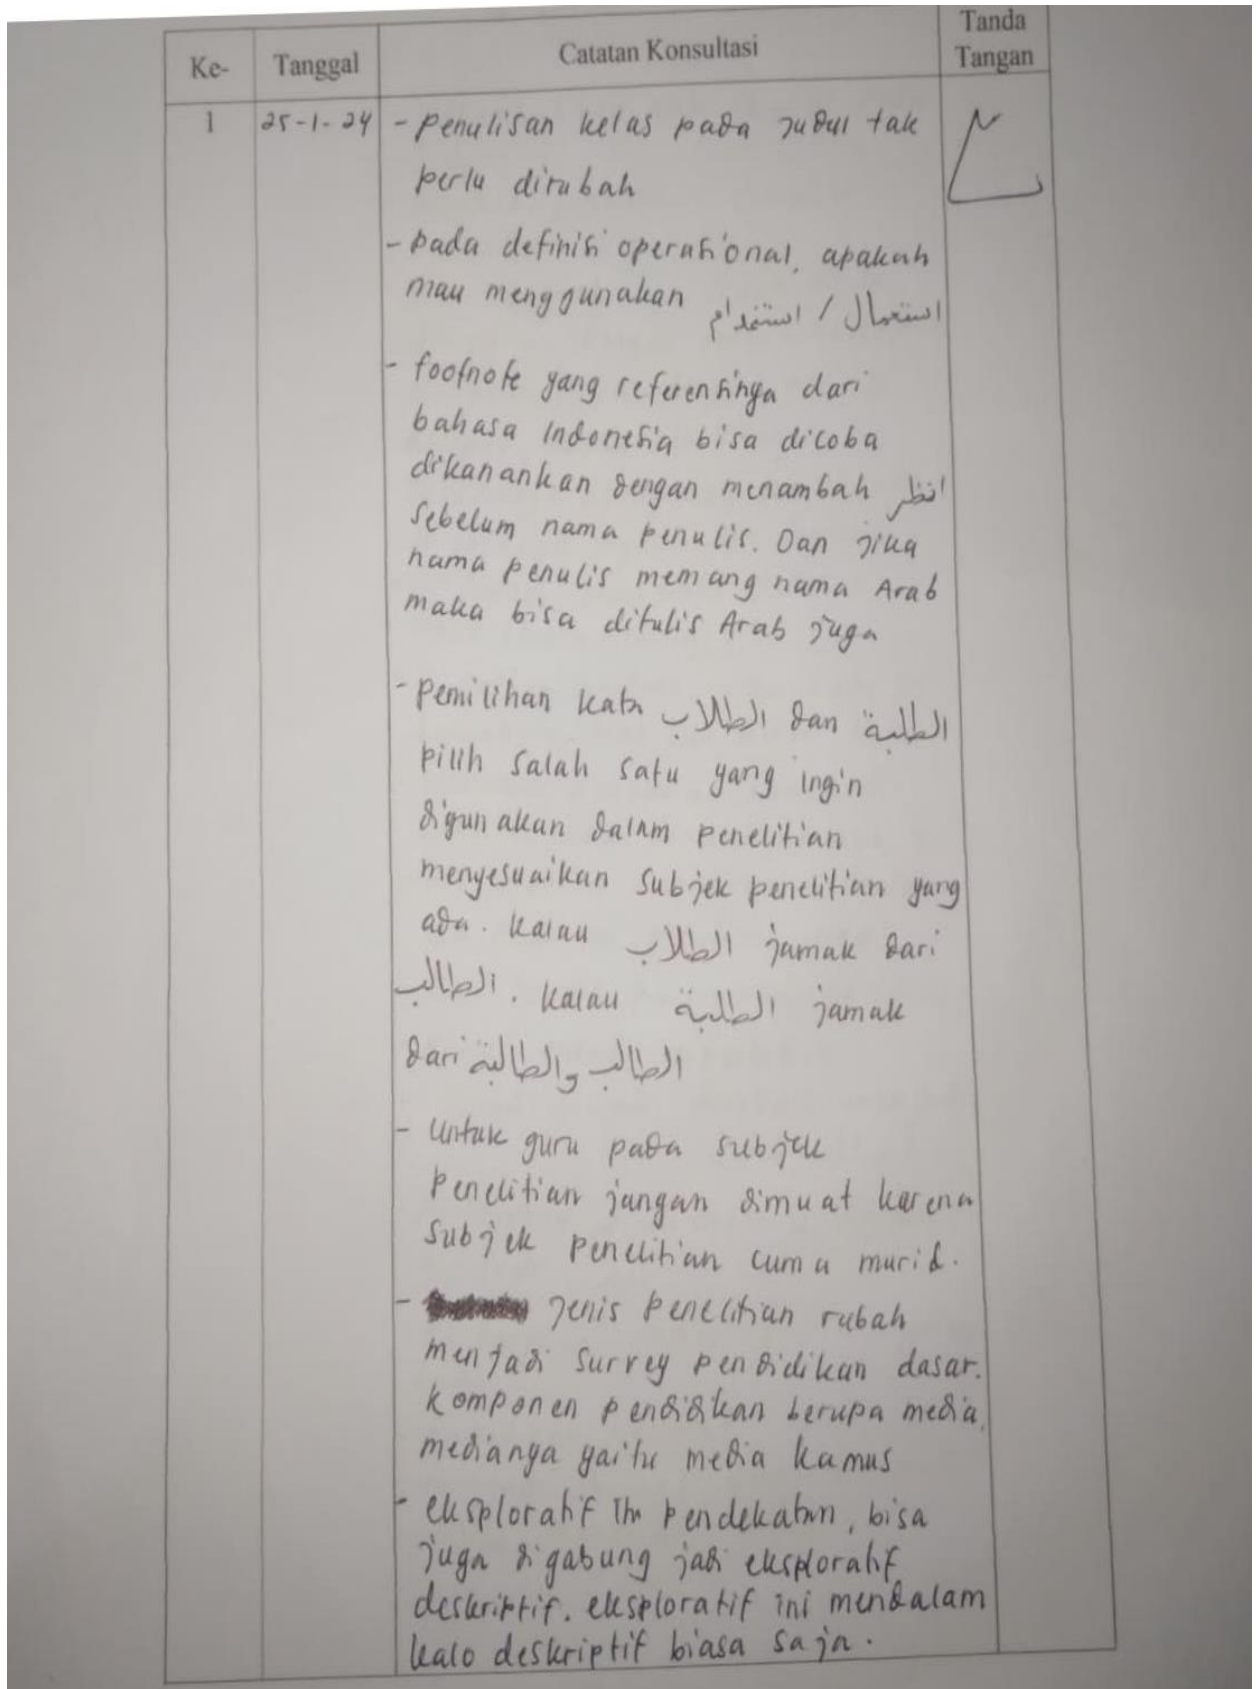 Ke-
Tanggal
Catatan Konsultasi
Tanda
Tangan
1
25-1-24
- Penulisan kelas pada judul tak
perlu dirubah
- pada definisi operasional, apakah
mau menggunakan استعمال / استخدام
- footnote yang referensinya dari
bahasa Indonesia bisa dicoba
dikanankan dengan menambah انظر
sebelum nama penulis. Dan jika
nama penulis memang nama Arab
maka bisa ditulis Arab juga
- Pemilihan kata الطلاب dan الطلبة
pilih salah satu yang ingin
digunakan dalam penelitian
menyesuaikan subjek penelitian yang
ada. kalau الطلاب jamak dari
الطالب. kalau الطلبة jamak
dari الطالب والطالبة
- untuk guru pada subjek
penelitian jangan dimuat karena
subjek penelitian cuma murid.
- jenis penelitian rubah
menjadi survey pendidikan dasar.
komponen pendidikan berupa media,
medianya yaitu media kamus
- eksploratif itu pendekatan, bisa
juga digabung jadi eksploratif
deskriptif. eksploratif ini mendalam
kalo deskriptif biasa saja.